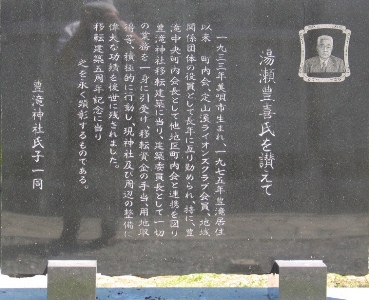 湯瀬豊喜氏を讃えて
一九三三年美唄市生まれ、一九七五年豊滝居住
以来 町内会、定山渓ライオンズクラブ会員、地域
関係団体の役員として長年に亙り勤められ、特に、豊
滝中央町内会長として他地区町内会と連携を図り
豊滝神社移転建築に当り、建築委員長として一切
の業務を一身に引受け、移転資金の手当、用地取
得等、積極的に行動し、現神社及び周辺の整備に
偉大な功績を後世に残されました。
移転建築五周年記念に当り
之を永く顕彰するものである。
豊滝神社氏子一同